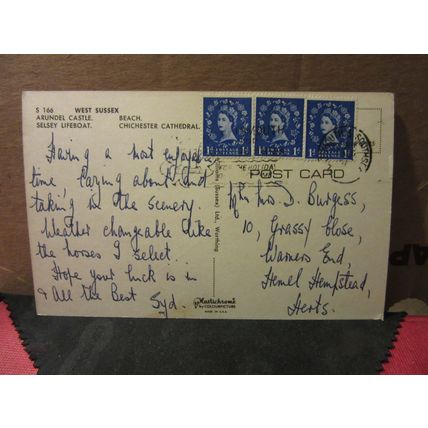 S 166 WEST SUSSEX
ARUNDEL CASTLE. BEACH.
SELSEY LIFEBOAT. CHICHESTER CATHEDRAL.
Having a most enjoyable
time, lazying about and
taking in the scenery.
Weather changeable like
the horses I select.
Hope your luck is in
& All the Best Syd.
(Sussex) Ltd., Worthing
Plastichrome
by COLOURPICTURE
MADE IN U.S.A.
HOLIDAY
POST CARD
Mr & Mrs D. Burgess,
10, Grassy Close,
Warners End,
Hemel Hempstead,
Herts.
1D 1D 1D